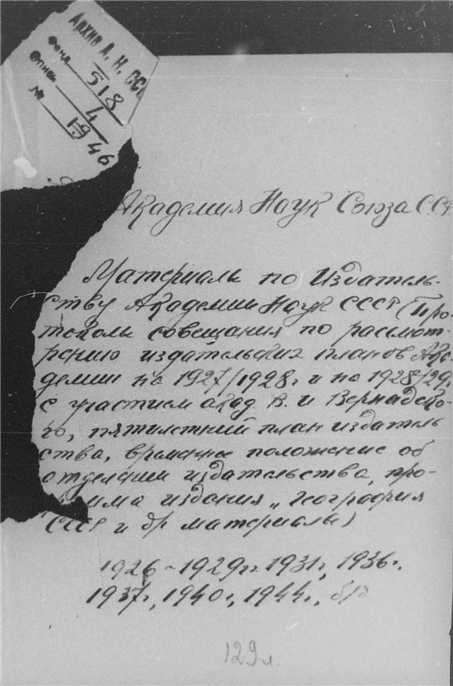 Архив А. Н. ССС
фонд 518
опись 4
№ 46
Академия Наук Союза ССР
Материалы по Издатель-
ству Академии Наук СССР (Про-
токолы совещания по рассмот-
рению издательских планов Ака-
демии на 1927/1928 г. и на 1928/29г.
с участием акад. В. И Вернадско-
го, пятилетний план издатель
ства, временное положение об
отделении издательства, про-
грамма издания „География
СССР" и др материалы)
1926-1929гг 1931г, 1936г.
1937г, 1940г, 1944г., б/д
129 л.